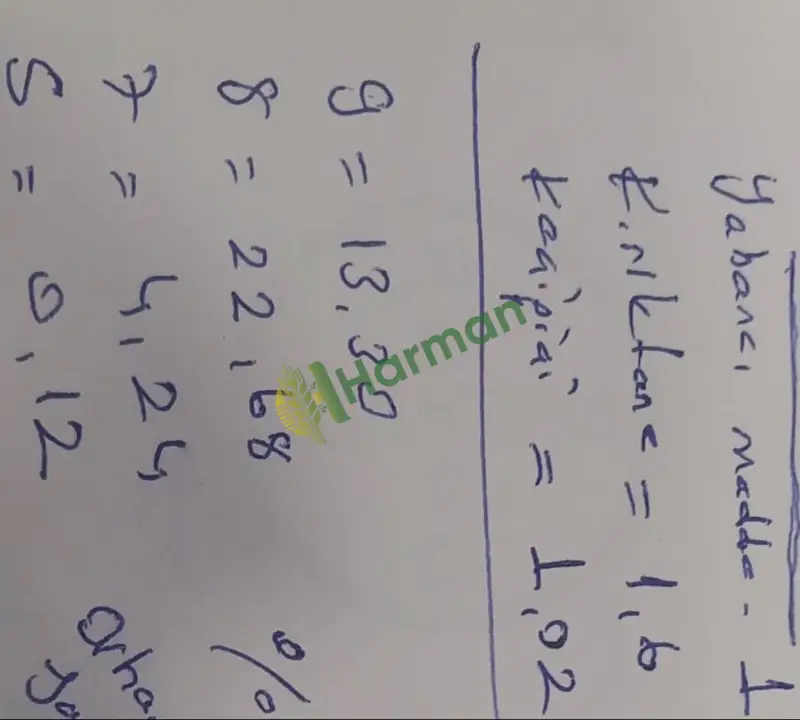 Yabancı madde - 1
Kırıktane = 1,6
= 1,02
9 = 13,30
8 = 22,68
7 = 4,24
5 = 0,12
%
Harman